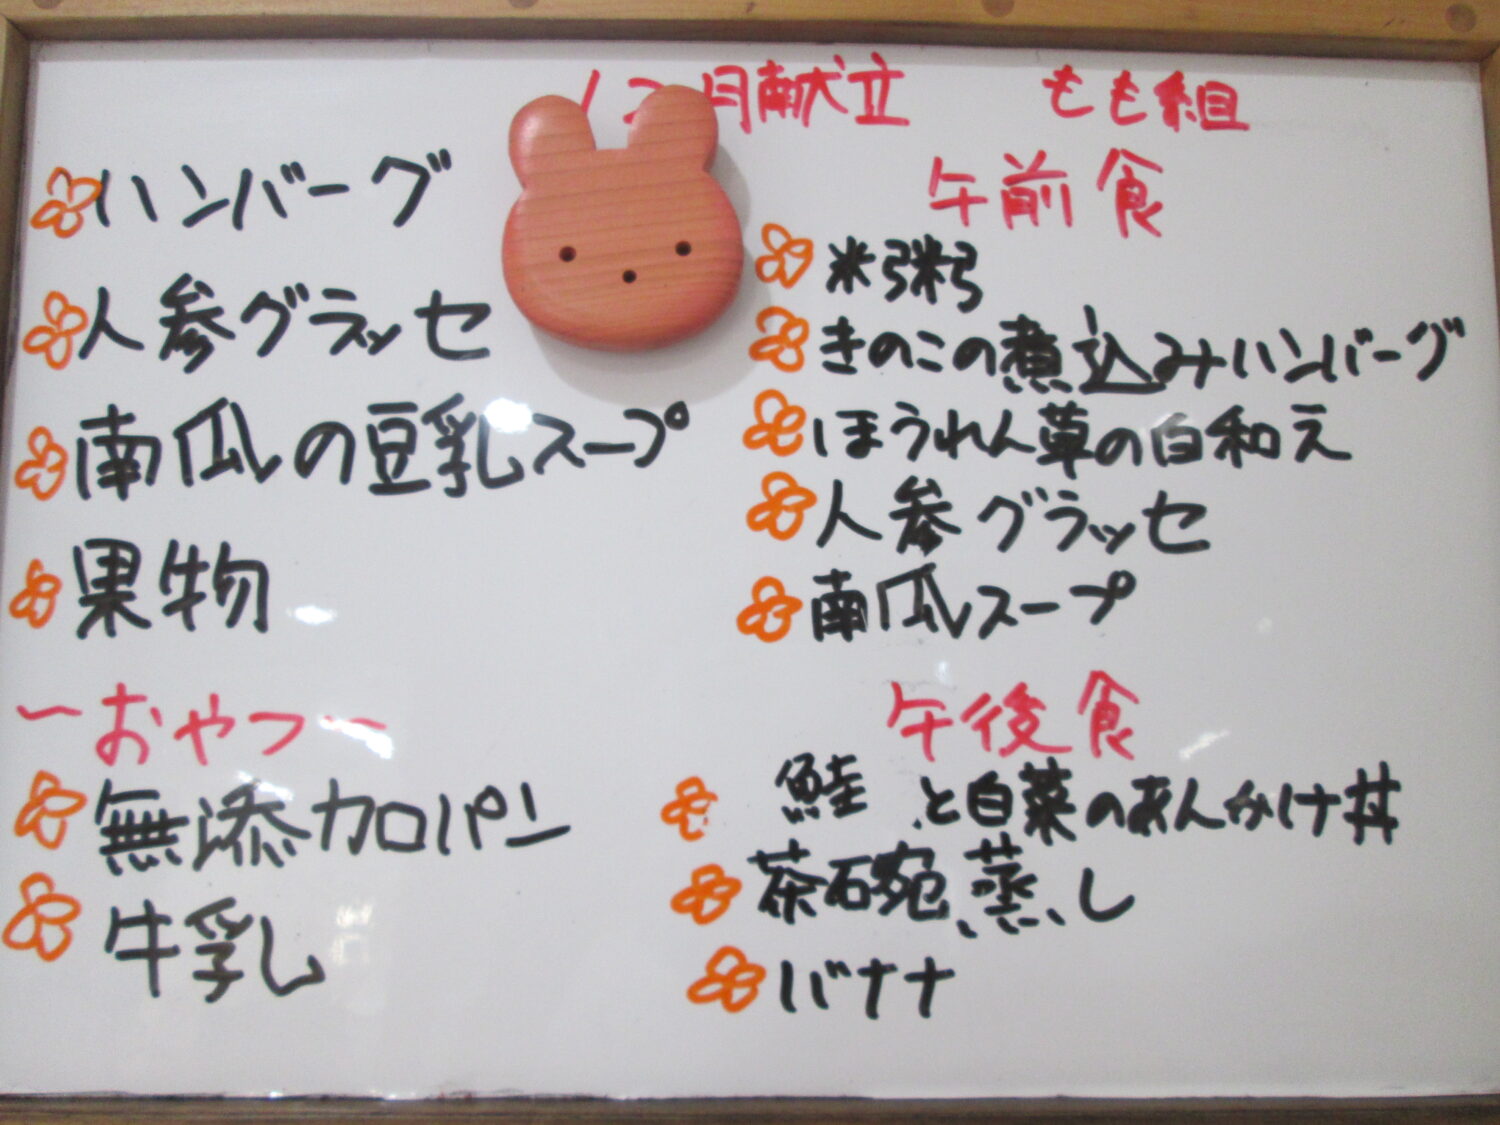 12月献立 もも組
ハンバーグ
人参グラッセ
南瓜の豆乳スープ
果物
〜おやつ〜
無添加ロパン
牛乳
午前食
米粥
きのこの煮込みハンバーグ
ほうれん草の白和え
人参グラッセ
南瓜スープ
午後食
鮭と白菜のあんかけ丼
茶碗蒸し
バナナ